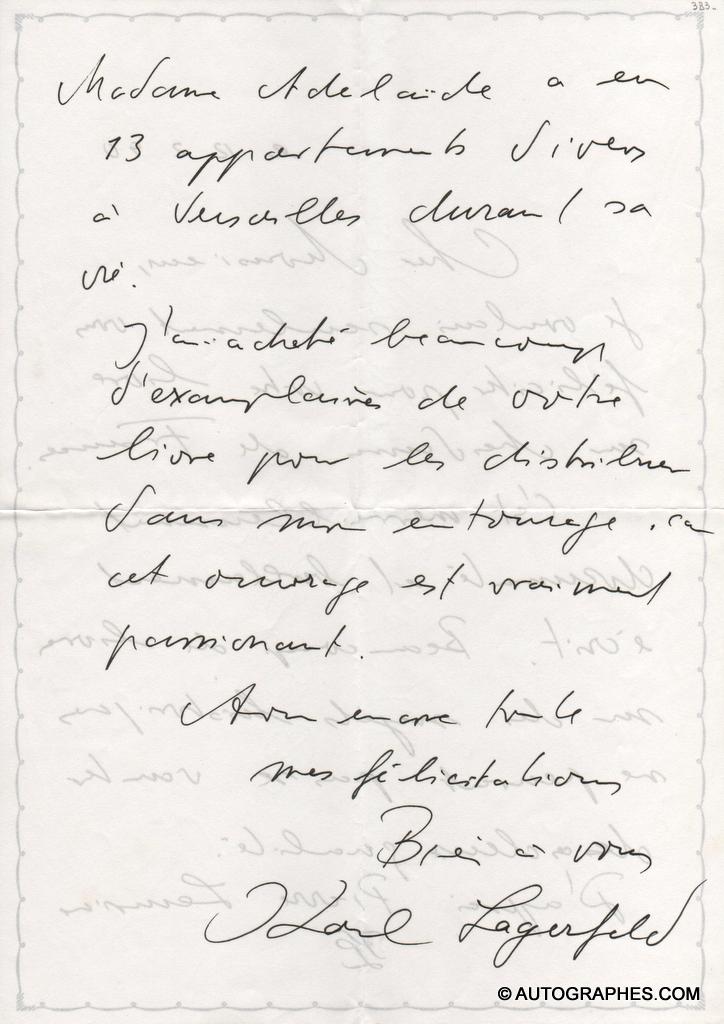 383-
Madame Adelaïde a eu
13 appartements divers
à Versailles durant sa
vie.
J'ai acheté beaucoup
d'exemplaires de votre
livre pour les distribuer
dans mon entourage, car
cet ouvrage est vraiment
passionant.
Avec encore toute
mes félicitations
Bien à vous
Karl Lagerfeld
© AUTOGRAPHES.COM